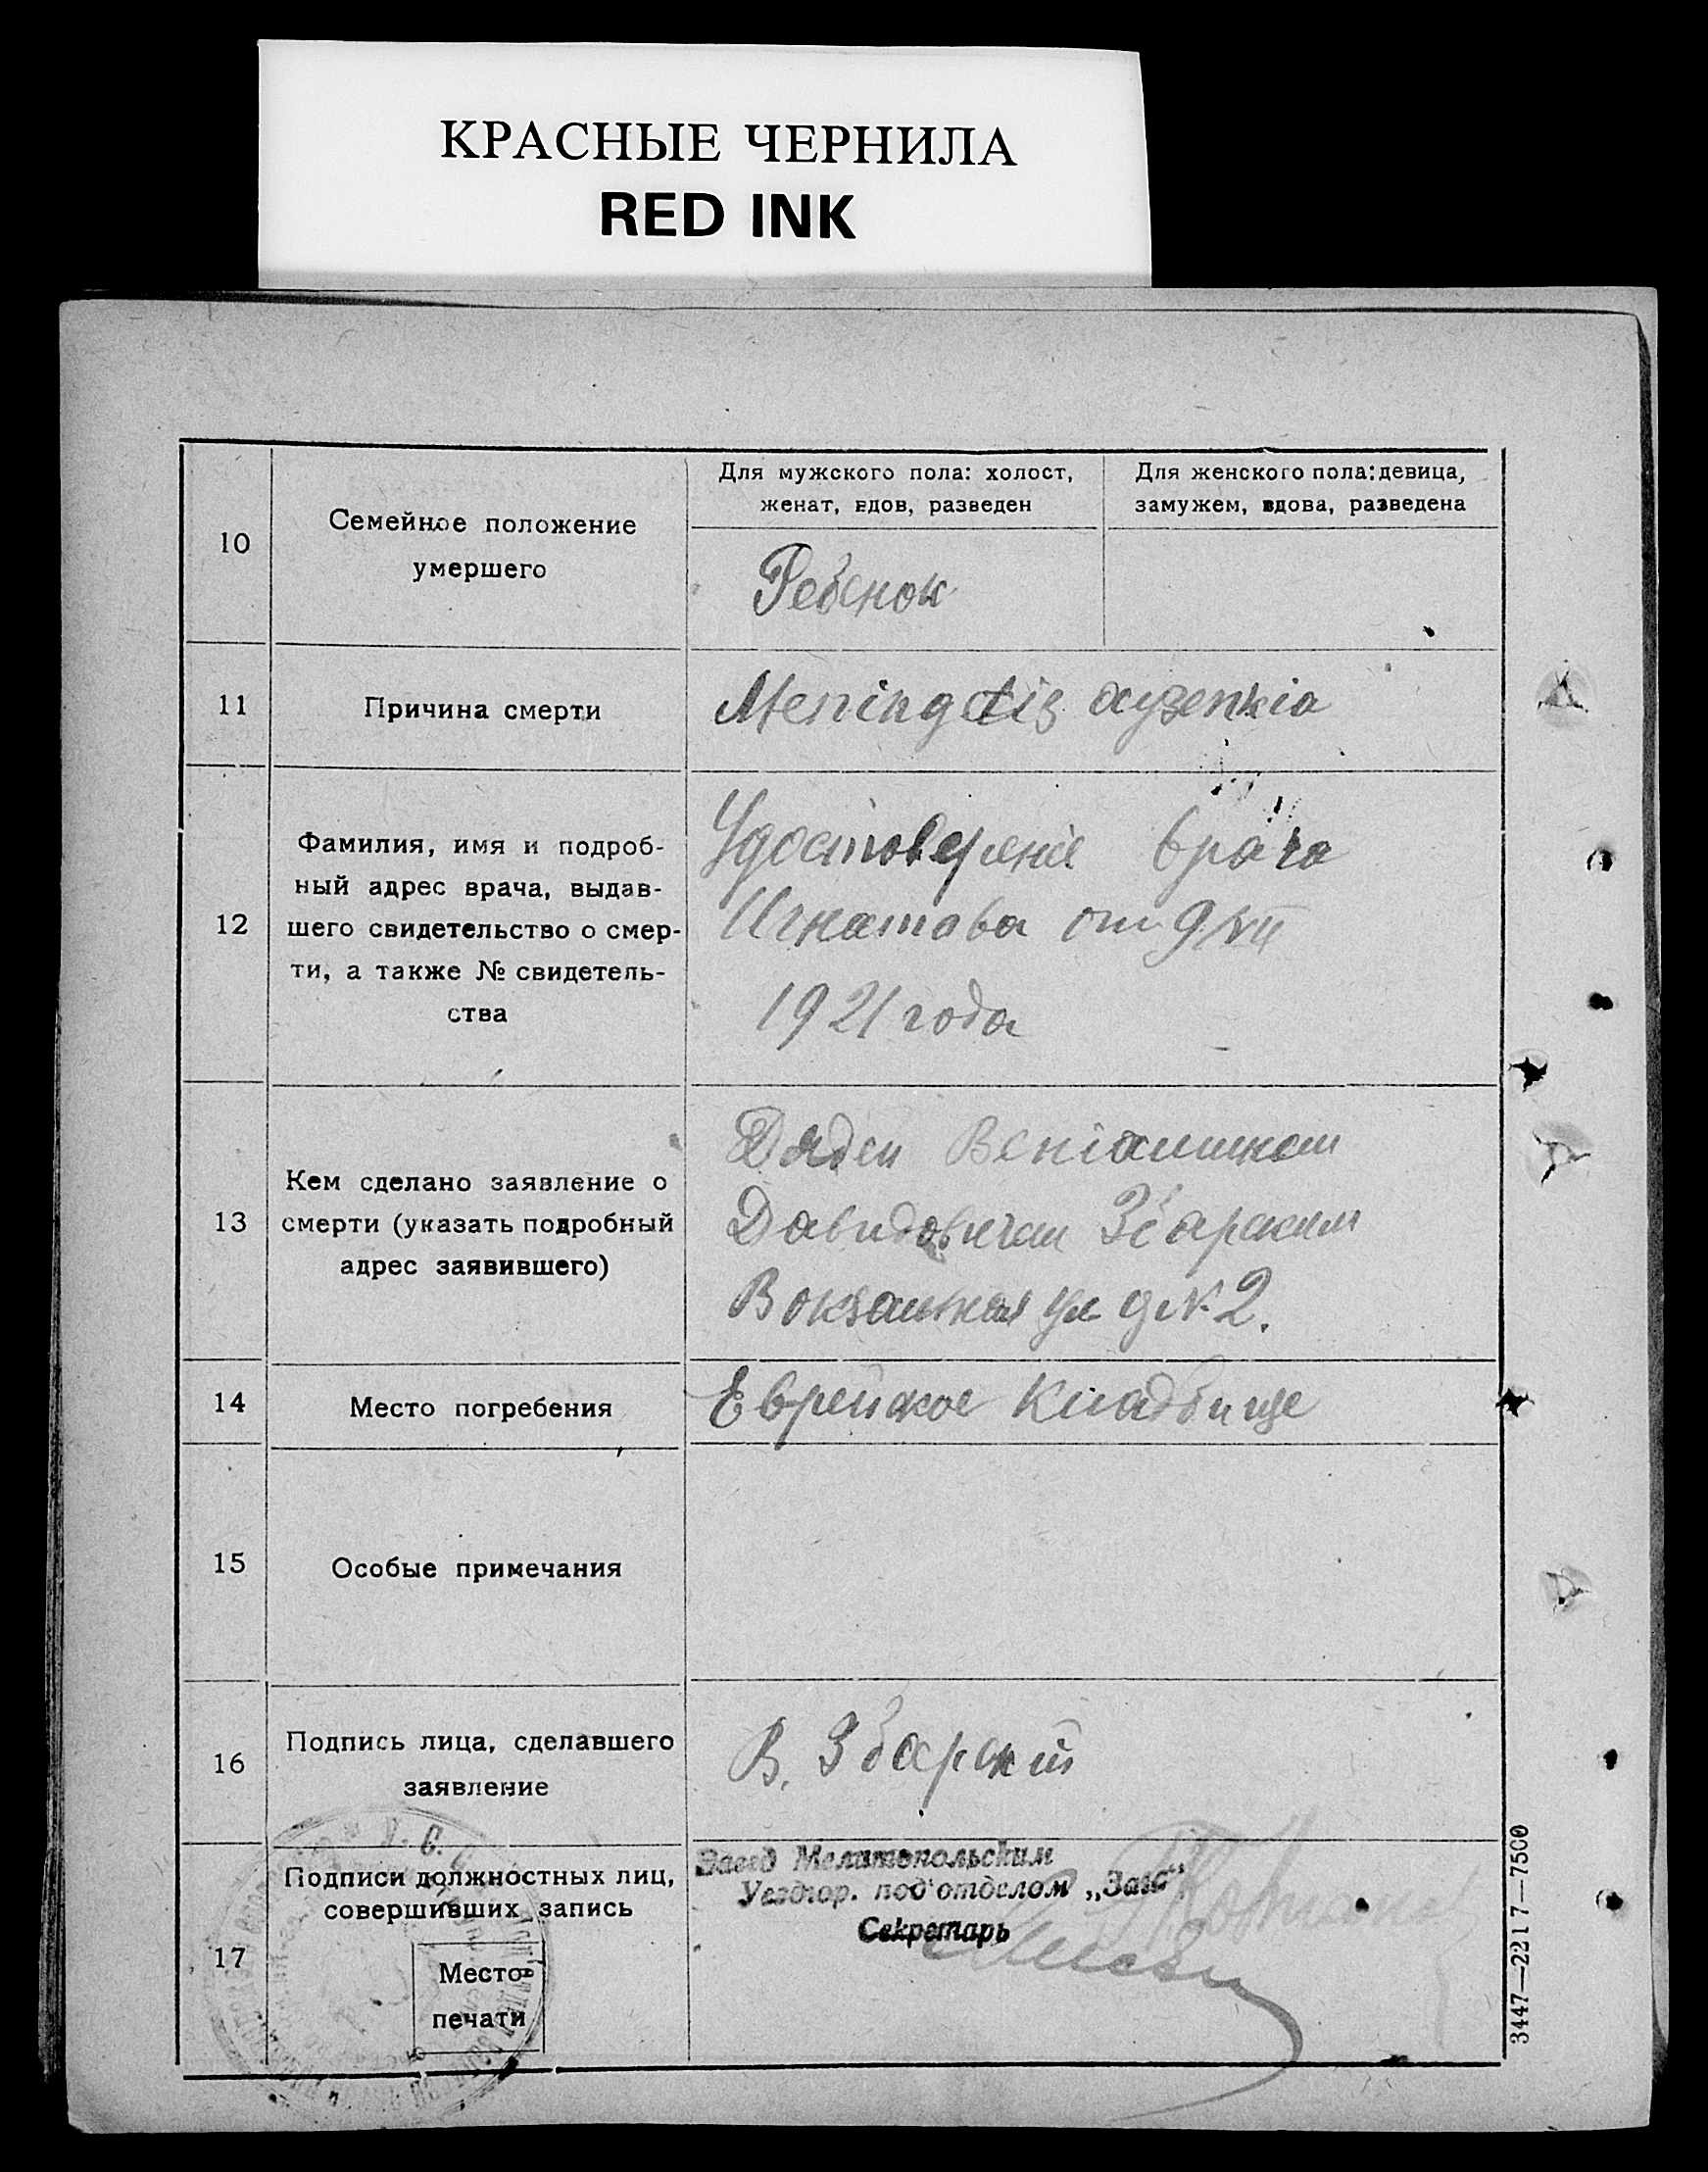 КРАСНЫЕ ЧЕРНИЛА
RED INK
10
Семейное положение
умершего
Для мужского пола: холост,
женат, вдов, разведен
Для женского пола: девица,
замужем, вдова, разведена
Ребенок
11
Причина смерти
Meningitis
12
Фамилия, имя и подроб-
ный адрес врача, выдав-
шего свидетельство о смер-
ти, а также № свидетель-
ства
Удостоверение врача
Игнатова от 9/VII
1921 года
13
Кем сделано заявление о
смерти (указать подробный
адрес заявившего)
Дядей Вениамином
Давидовичем Збарским
Вокзальная ул д № 2.
14
Место погребения
Еврейское Кладбище
15
Особые примечания
16
Подпись лица, сделавшего
заявление
В. Збарский
17
Подписи должностных лиц,
совершивших запись
Место
печати
Завед Мелитопольским
Уездгор. под'отделом „Загс"
Секретарь
3447—2217—7500